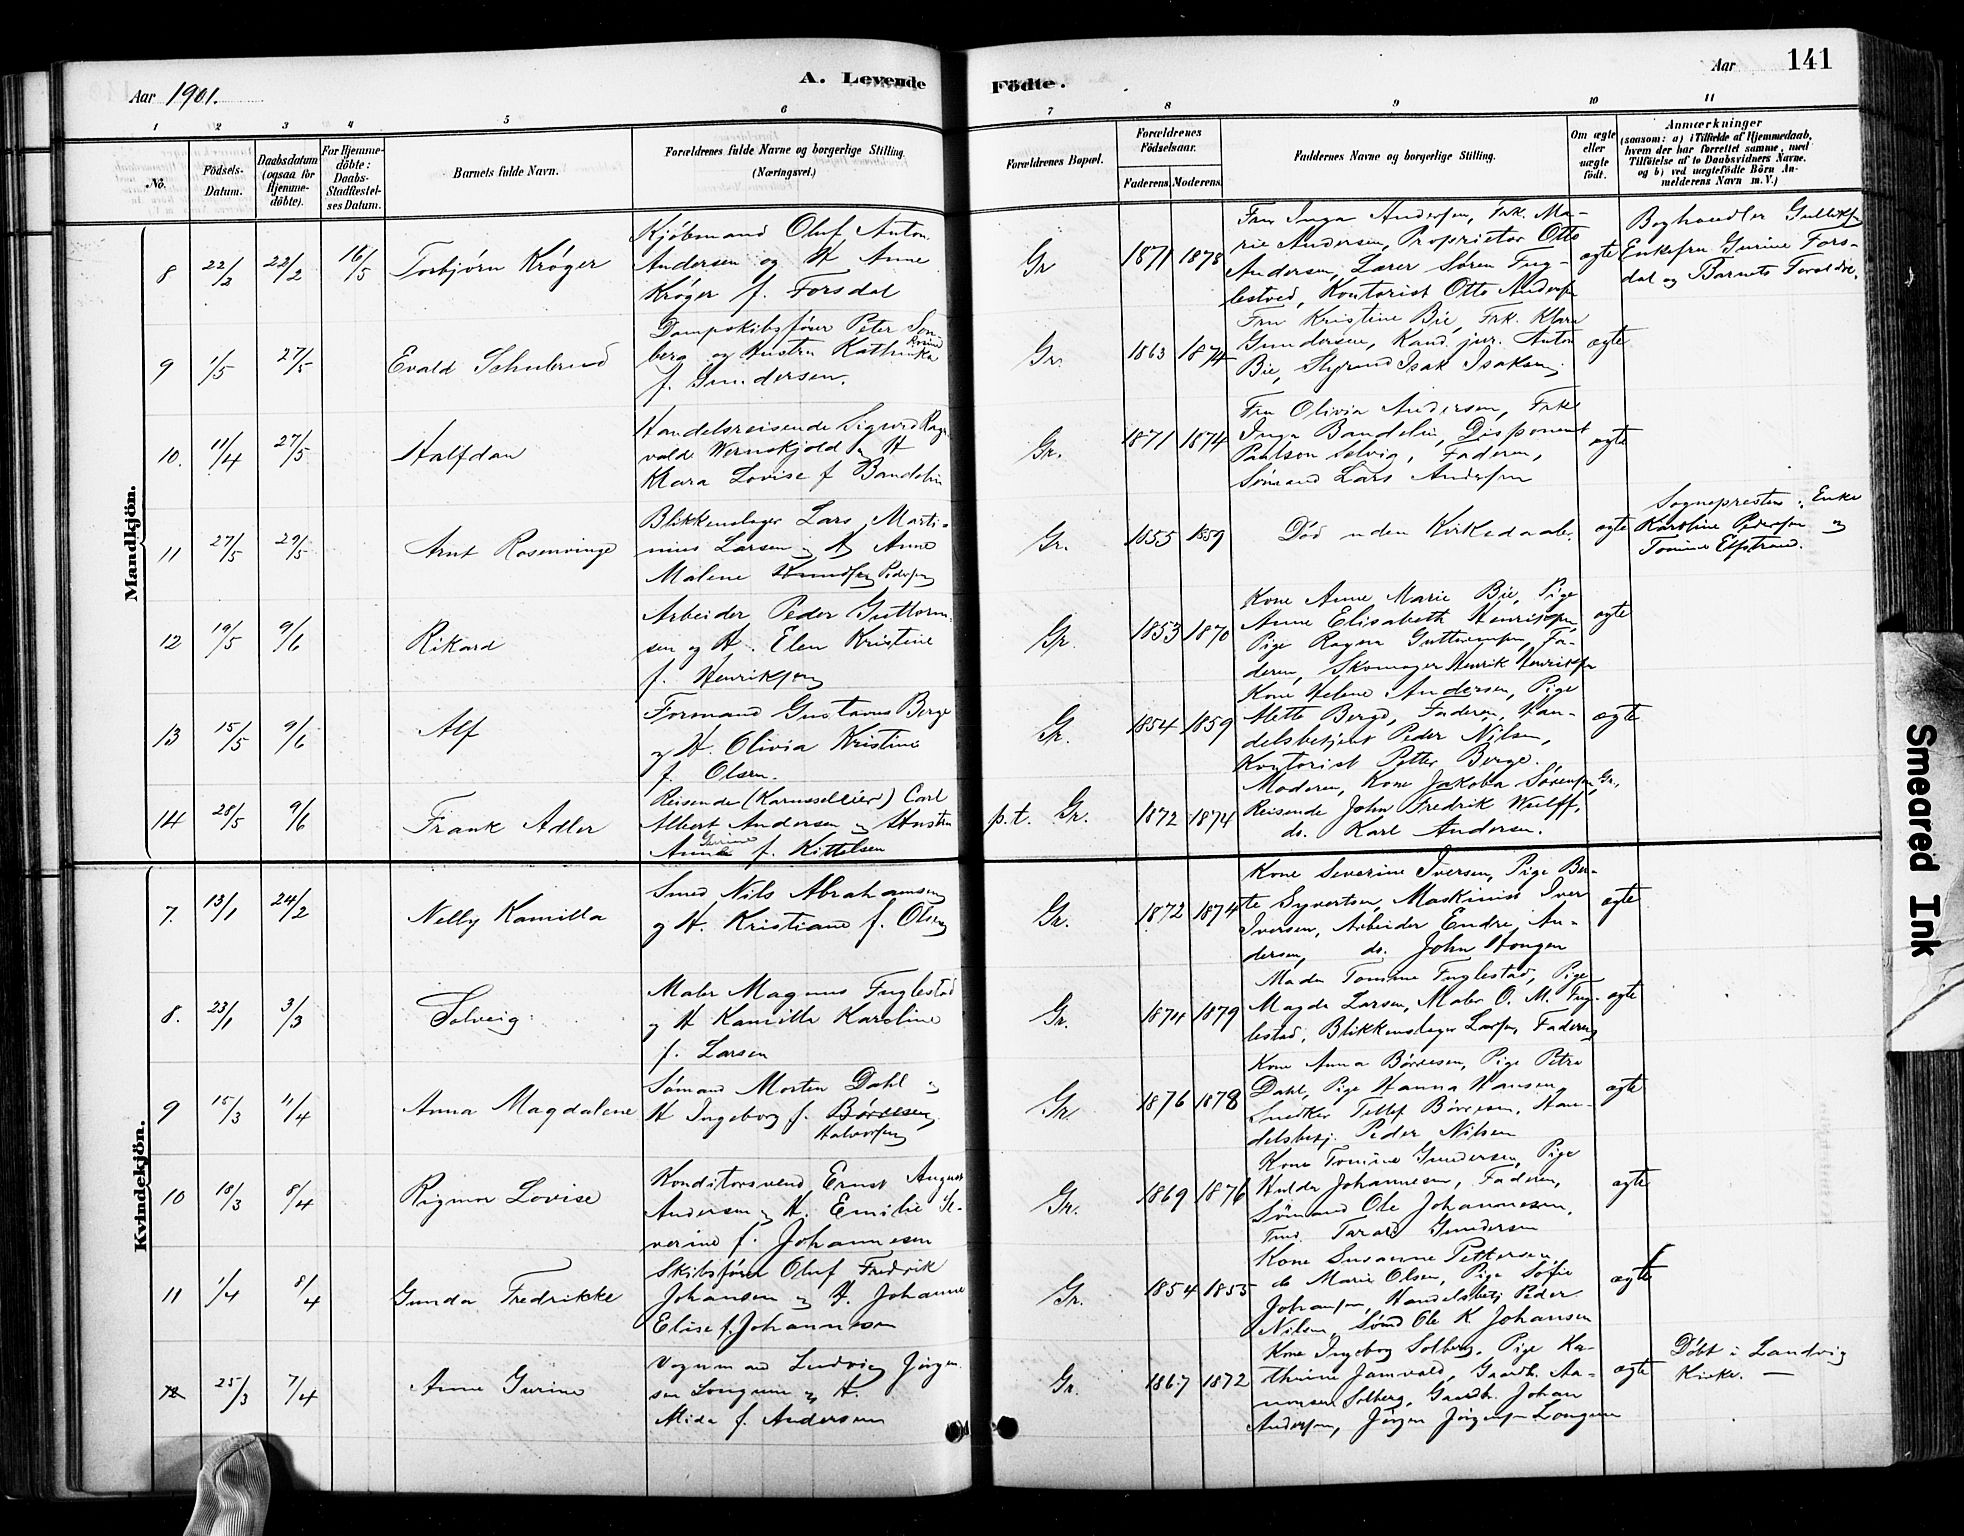 Aar 1901.
A. Levende
Födte.
Aar
141
1 2 3 4 5 6 7 8 9 10 11
No.
Födsels-
Datum.
Daabsdatum
(ogsaa för
Hjemme-
döbte).
For Hjemme-
döbte:
Daabs-
Stadfæstel-
ses Datum.
Barnets fulde Navn.
Forældrenes fulde Navne og borgerlige Stilling.
(Næringsvei.)
Forældrenes Bopæl.
Forældrenes
Födselsaar.
Faderens. Moderens.
Faddernes Navne og borgerlige Stilling.
Om ægte
eller
uægte
födt.
Anmærkninger
(saasom: a) i Tilfælde af Hjemmedaab,
hvem der har forrettet samme, med
Tilföielse af to Daabsvidners Navne.
og b) ved uægtefödte Börn An-
melderens Navn m. V.)
Mandkjön.
8 22/2 22/2 16/5 Torbjørn Krøger
Kjøbmand Oluf Anton
Andersen og H Anne
Krøger f. Forsdal
Gr 1871 1878
Fru Inga Andersen, Frk. Ma-
rie Andersen, Proprietær Otto
Andersen, Lærer Søren Fug-
lestved, Kontorist Otto Andersen
ægte
Boghandler Gulliksen
Enkefru Gurine Fors-
dal og Barnets Forældre.
9 1/5 27/5 Evald Schulerud
Dampskibsfører Peter Son-
berg og Hustru Kathinka
f. Gundersen.
Gr. 1863 1874
Fru Kristine Bie, Frk. Klara
Gundersen, Kand. jur. Anton
Bie, Styrmand Isak Isaksen
ægte
10. 11/4 27/5 Halfdan
Handelsreisende Sigurd Rag-
vald Wernskjold og H
Klara Lovise f Bandelin
Gr. 1871 1874
Fru Olivia Andersen, Frk
Inga Bandelin, Disponent
Paulson Selvig, Faderen,
Sømand Lars Andersen
ægte
11 27/5 29/5 Arnt Rosenvinge
Blikkenslager Lars Marti-
nius Larsen og H Anne
Malene Knudsen Pedersen
Gr. 1855 1859
Død uden Kirkedaab.
ægte
Sognepresten: Enke
Karoline Pedersen og
Tomine Elfstrand.
12 19/5 9/6 Rikard
Arbeider Peder Guttorm-
sen og H. Elen Kristine
f. Henriksen
Gr. 1853 1870
Kone Anne Marie Bie, Pige
Anne Elisabeth Henriksen,
Pige Ragna Guttormsen, Fa-
deren, Skomager Henrik Henriksen
ægte
13 15/5 9/6 Alf
Formand Gustavus Berge
og H. Olivia Kristine
f. Olsen.
Gr. 1854 1859
Kone Helene Andersen, Pige
Mette Berge, Faderen, Han-
delsbetjent Peder Nilsen,
Kontorist Petter Berge.
ægte
14 28/5 9/6 Frank Adler
Reisende (Karussellier) Carl
Albert Andersen og Hustru
Anne Gurine f. Kittelsen
p.t. Gr. 1872 1874
Moderen, Kone Jakoba Sørensen, Gr.
Reisende John Fredrik Wulff,
do. Karl Andersen.
Kvindekjön.
7. 13/1 24/2 Nelly Kamilla
Smed Nils Abrahamsen
og H. Kristiane f. Olsen
Gr. 1872 1874
Kone Severine Iversen, Pige Ber-
te Syvertsen, Maskinist Iver
Iversen, Arbeider Endre An-
dersen, do. John Haugen
ægte
8. 23/1 3/3 Solveig
Maler Magnus Fuglestad
og H Kamilla Karoline
f. Larsen
Gr. 1874 1879
Madm Tomine Fuglestad, Pige
Magda Larsen, Maler O. M. Fug-
lestad, Blikkenslager Larsen, Faderen
ægte
9 15/3 11/4 Anna Magdalene
Sømand Morten Dahl og
H Ingeborg f. Børresen
Halvorsen
Gr. 1876 1878
Kone Anna Børresen, Pige Petra
Dahl, Pige Hanna Hansen
Snedker Tellef Børresen, Han-
delsbetj. Peder Nilsen
ægte
10 18/3 8/4 Rigmor Lovise
Konditorsvend Ernst August
Andersen og H. Emilie Se-
verine f. Johannesen
Gr. 1869 1876
Kone Tomine Gundersen, Pige
Hulda Johannesen, Faderen,
Sømand Ole Johannesen,
Tarald Gundersen
ægte
11 1/4 8/4 Gunda Fredrikke
Skibsfører Oluf Fredrik
Johansen og H. Johanne
Elise f. Johannesen
Gr. 1854 1855
Kone Susanne Pettersen,
do Marie Olsen, Pige Sofie
Johansen, Handelsbetj Peder
Nilsen, Sømd Ole K Johansen
ægte
12 25/3 7/4 Anne Gurine
Vognmand Ludvig Jørgen-
sen Longum og H.
Mida f. Andersen
Gr. 1867 1872
Kone Ingeborg Solberg, Pige Ka-
thrine Jamvold, Gaardb. Aa-
nonsen Solberg, Gaardb. Johan
Andersen, Jørgen Jørgensen Longum
ægte
Døbt i Landvig
Kirke. —
Smeared Ink